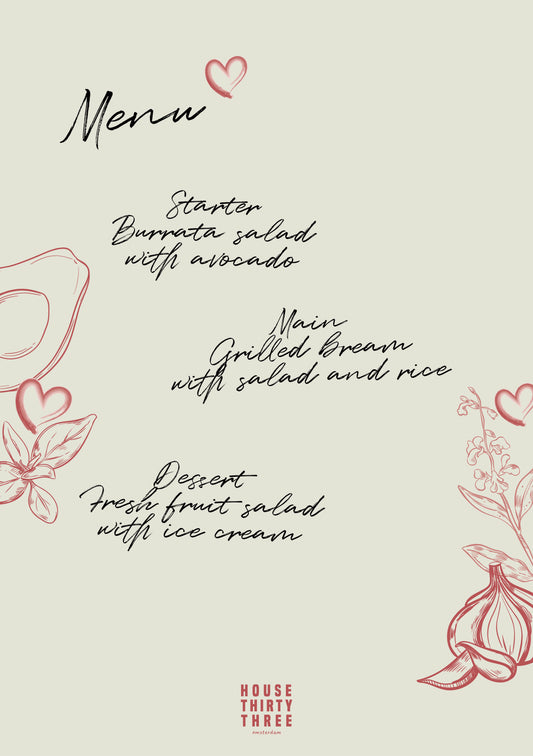 Menu
Starter
Burrata salad
with avocado
Main
Grilled bream
with salad and rice
Dessert
Fresh fruit salad
with ice cream
HOUSE
THIRTY
THREE
amsterdam